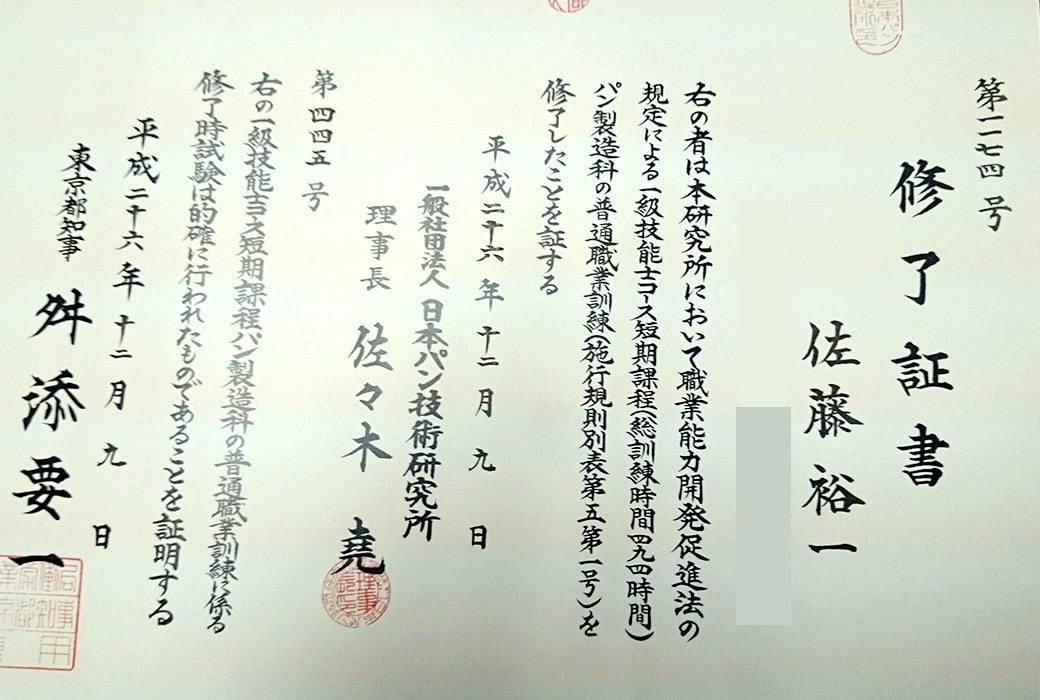 第一一七四号
修了証書
佐藤裕一
右の者は本研究所において職業能力開発促進法の
規定による一級技能士コース短期課程(総訓練時間四九四時間)
パン製造科の普通職業訓練(施行規則別表第五第一号)を
修了したことを証する
平成二十六年十二月九日
一般社団法人日本パン技術研究所
理事長 佐々木 堯
第四四五号
右の一級技能士コース短期課程パン製造科の普通職業訓練に係る
修了時試験は的確に行われたものであることを証明する
平成二十六年十二月九日
東京都知事 舛添要一